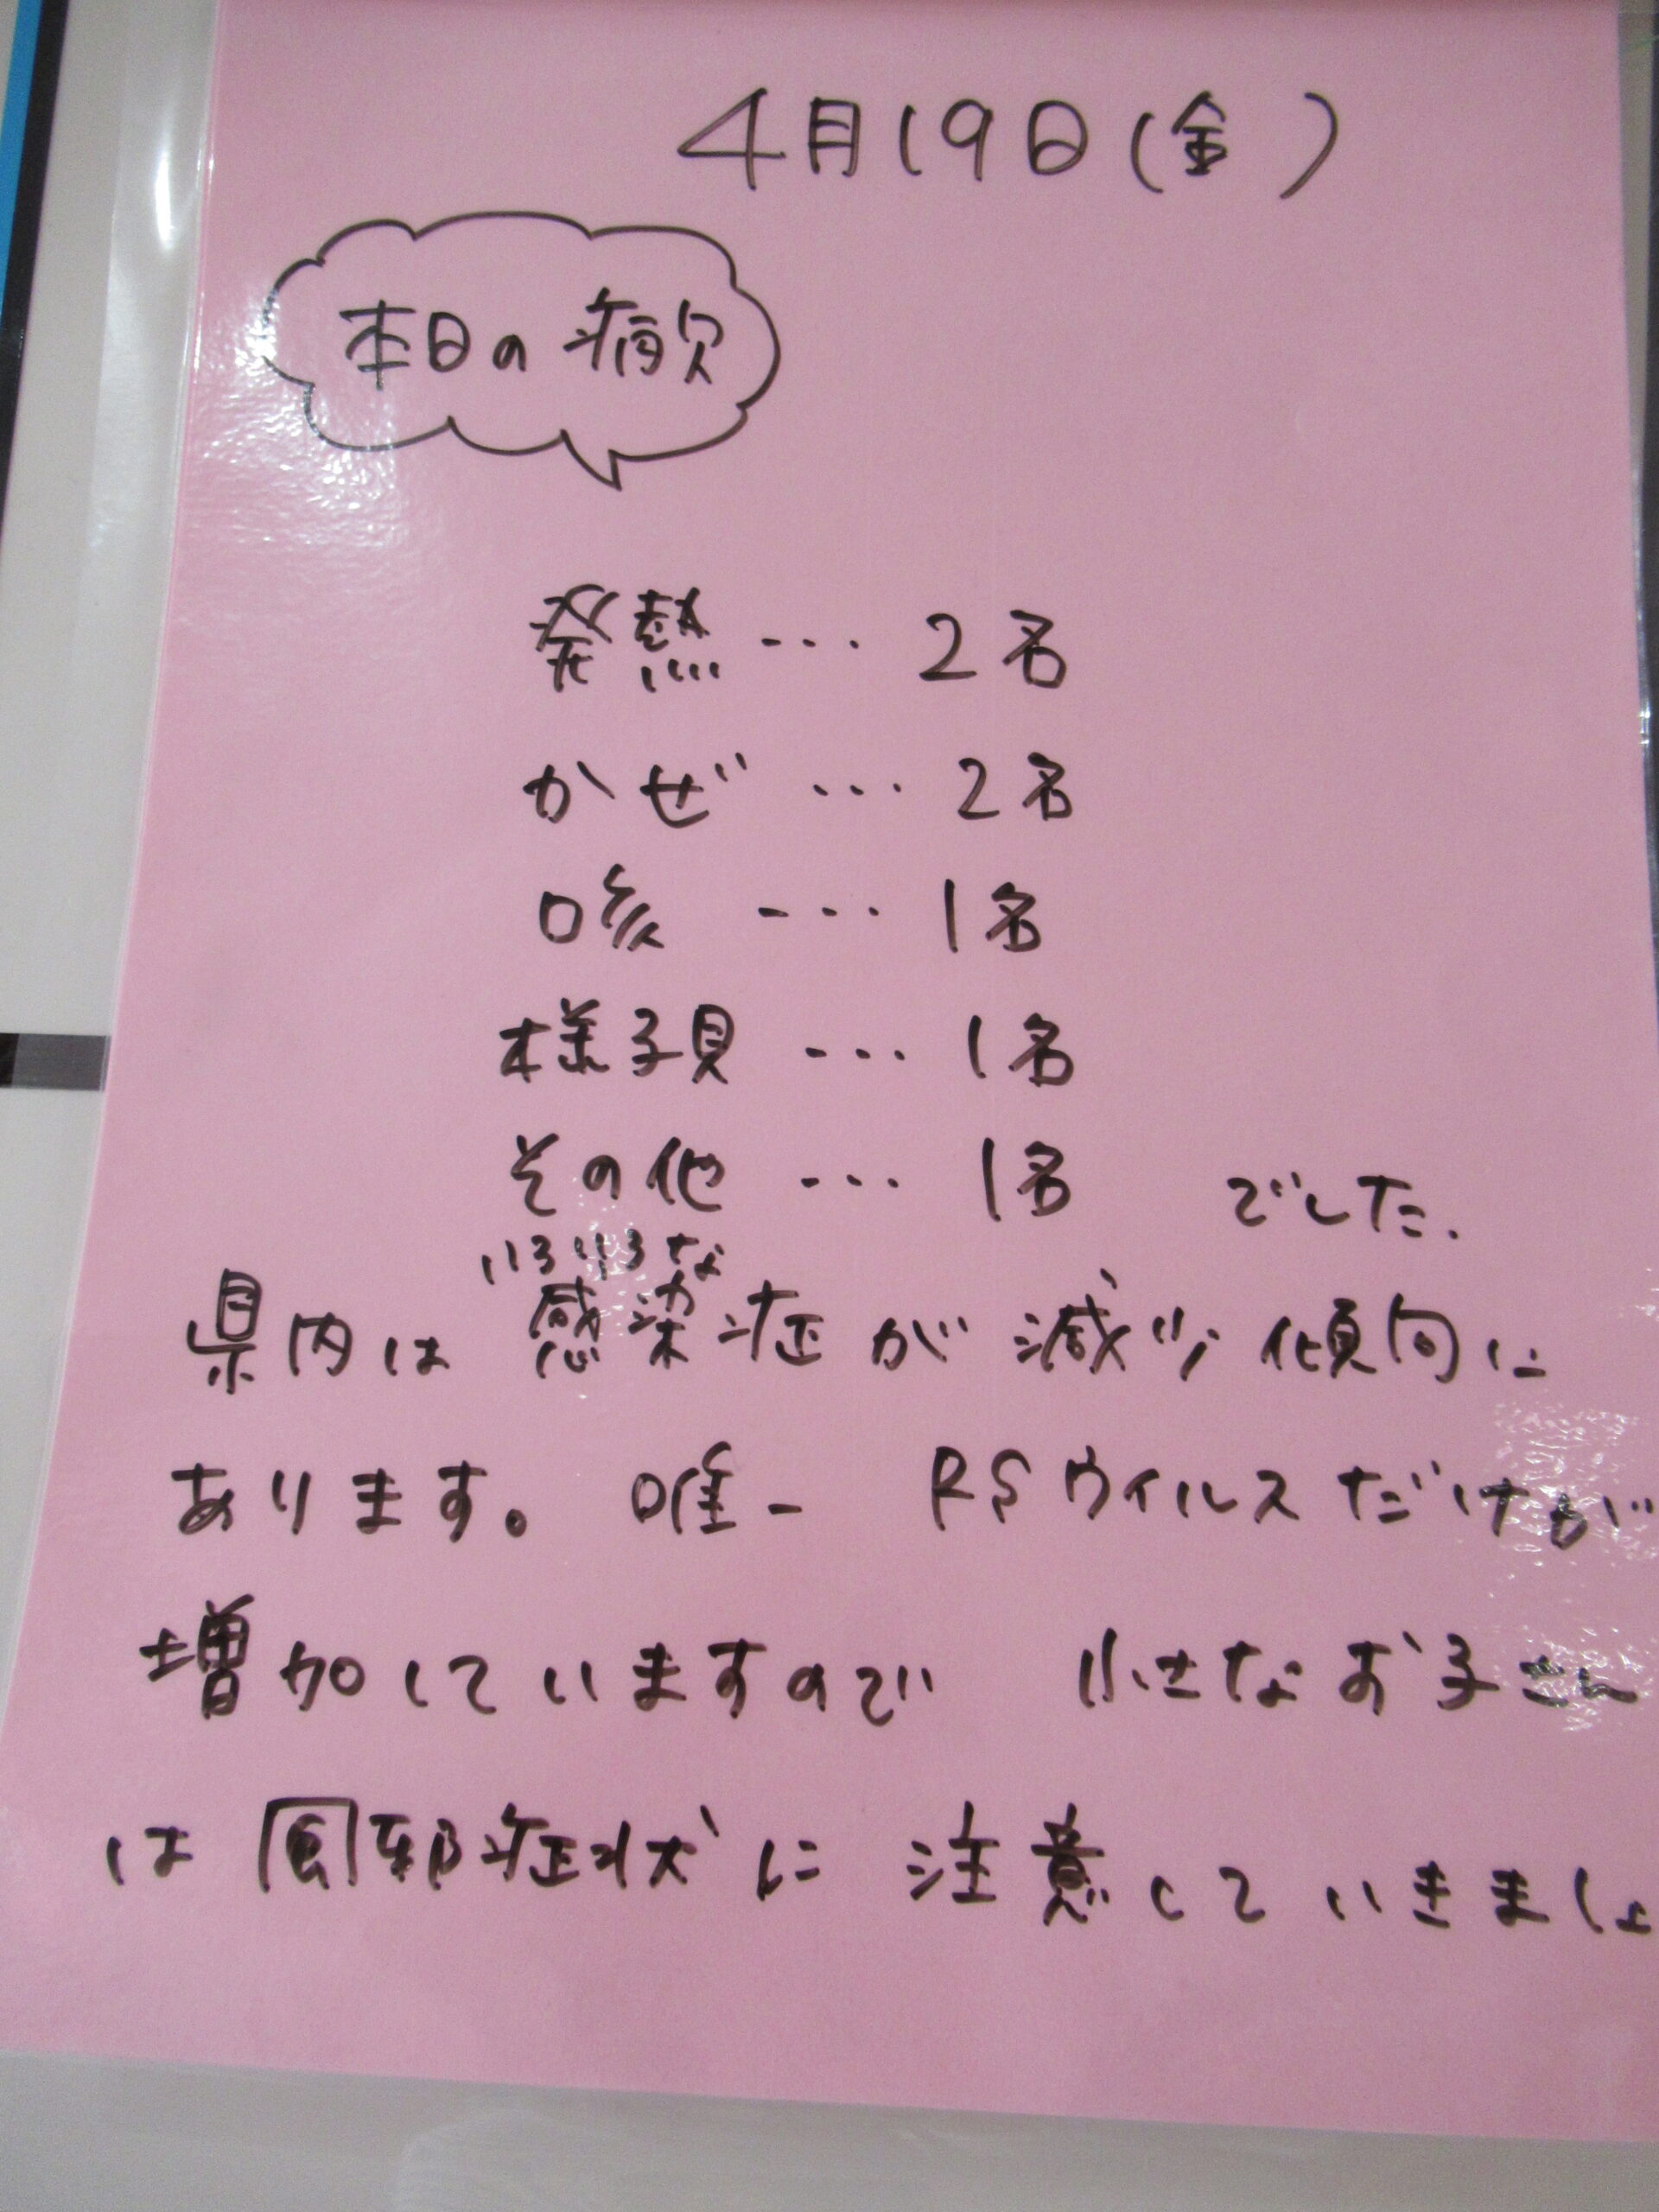 4月19日(金)
本日の病欠
発熱…2名
かぜ…2名
咳…1名
様子見…1名
その他…1名 でした.
いろいろな
県内は感染症が減少傾向に
あります。唯一 RSウイルスだけが
増加していますので 小さなお子さん
は風邪症状に注意していきましょ